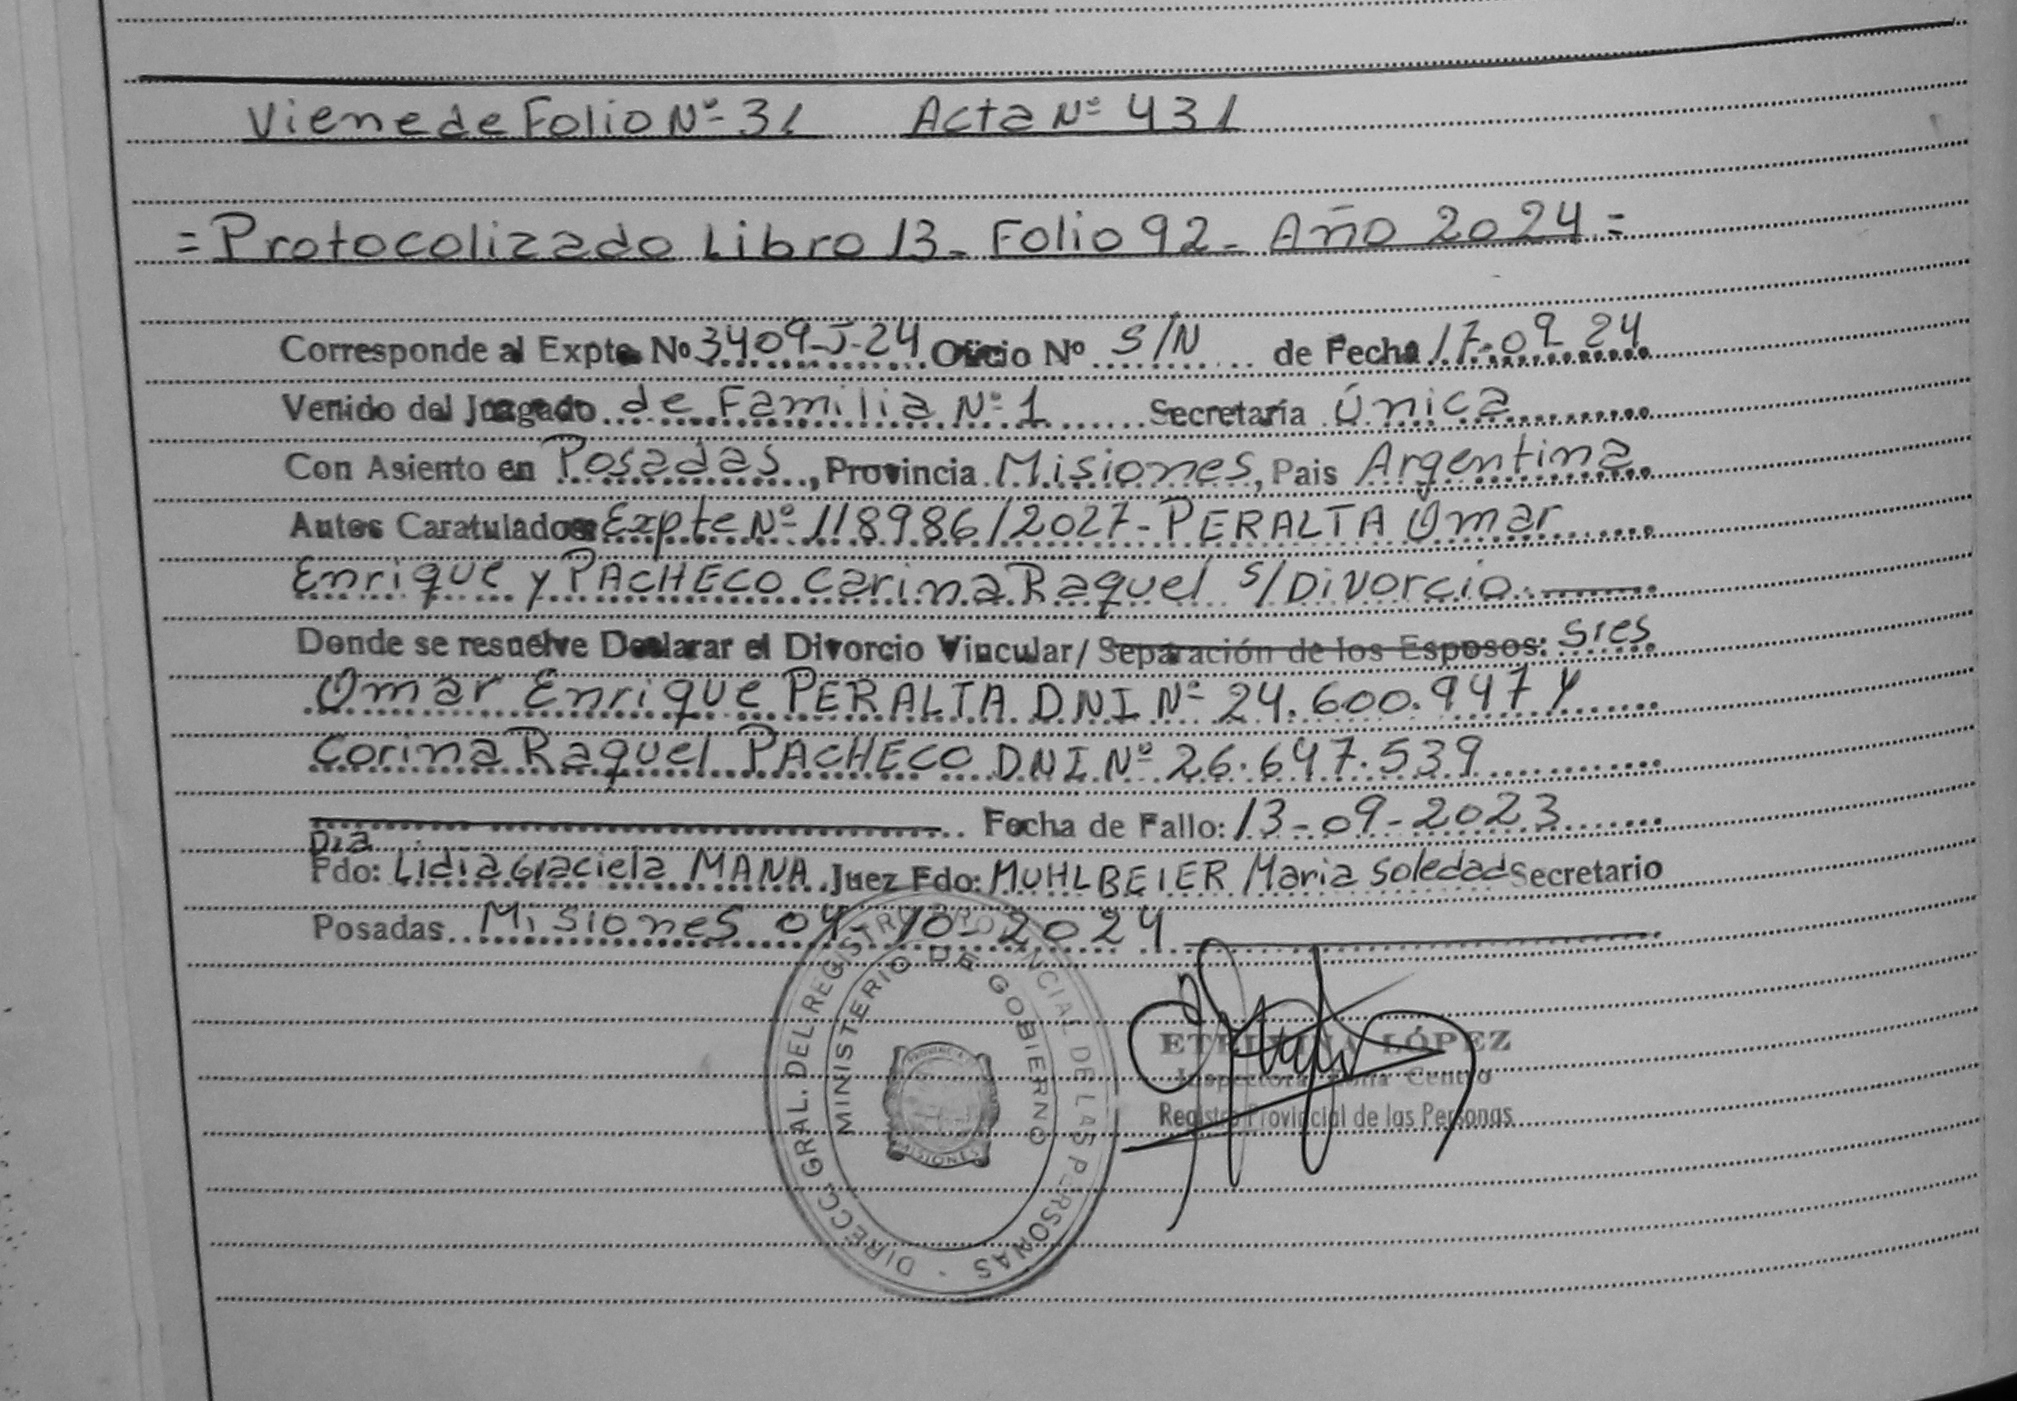 Viene de Folio Nº 31 Acta Nº 431
= Protocolizado Libro 13 - Folio 92 - Año 2024 =
Corresponde al Expte Nº 3409-J-24 Oficio Nº S/N de Fecha 17-09 24
Venido del Juzgado de Familia Nº 1 Secretaría Única
Con Asiento en Posadas, Provincia Misiones, Pais Argentina
Autos Caratulados Expte Nº 118986/2027 - PERALTA Omar
Enrique y PACHECO Carina Raquel s/Divorcio
Donde se resuelve Declarar el Divorcio Vincular/ Separación de los Esposos: Sres
Omar Enrique PERALTA DNI Nº 24.600.947 y
Corina Raquel PACHECO DNI Nº 26.647.539
Fecha de Fallo: 13-09-2023
Dra
Fdo: Lidia Graciela MANA Juez Fdo: MUHLBEIER Maria Soledad Secretario
Posadas Misiones 04-10-2024
DIRECC. GRAL. DEL REGISTRO PROVINCIAL DE LAS PERSONAS
MINISTERIO DE GOBIERNO
MISIONES
ETELVINA LÓPEZ
Inspectora Zona Centro
Registro Provincial de las Personas